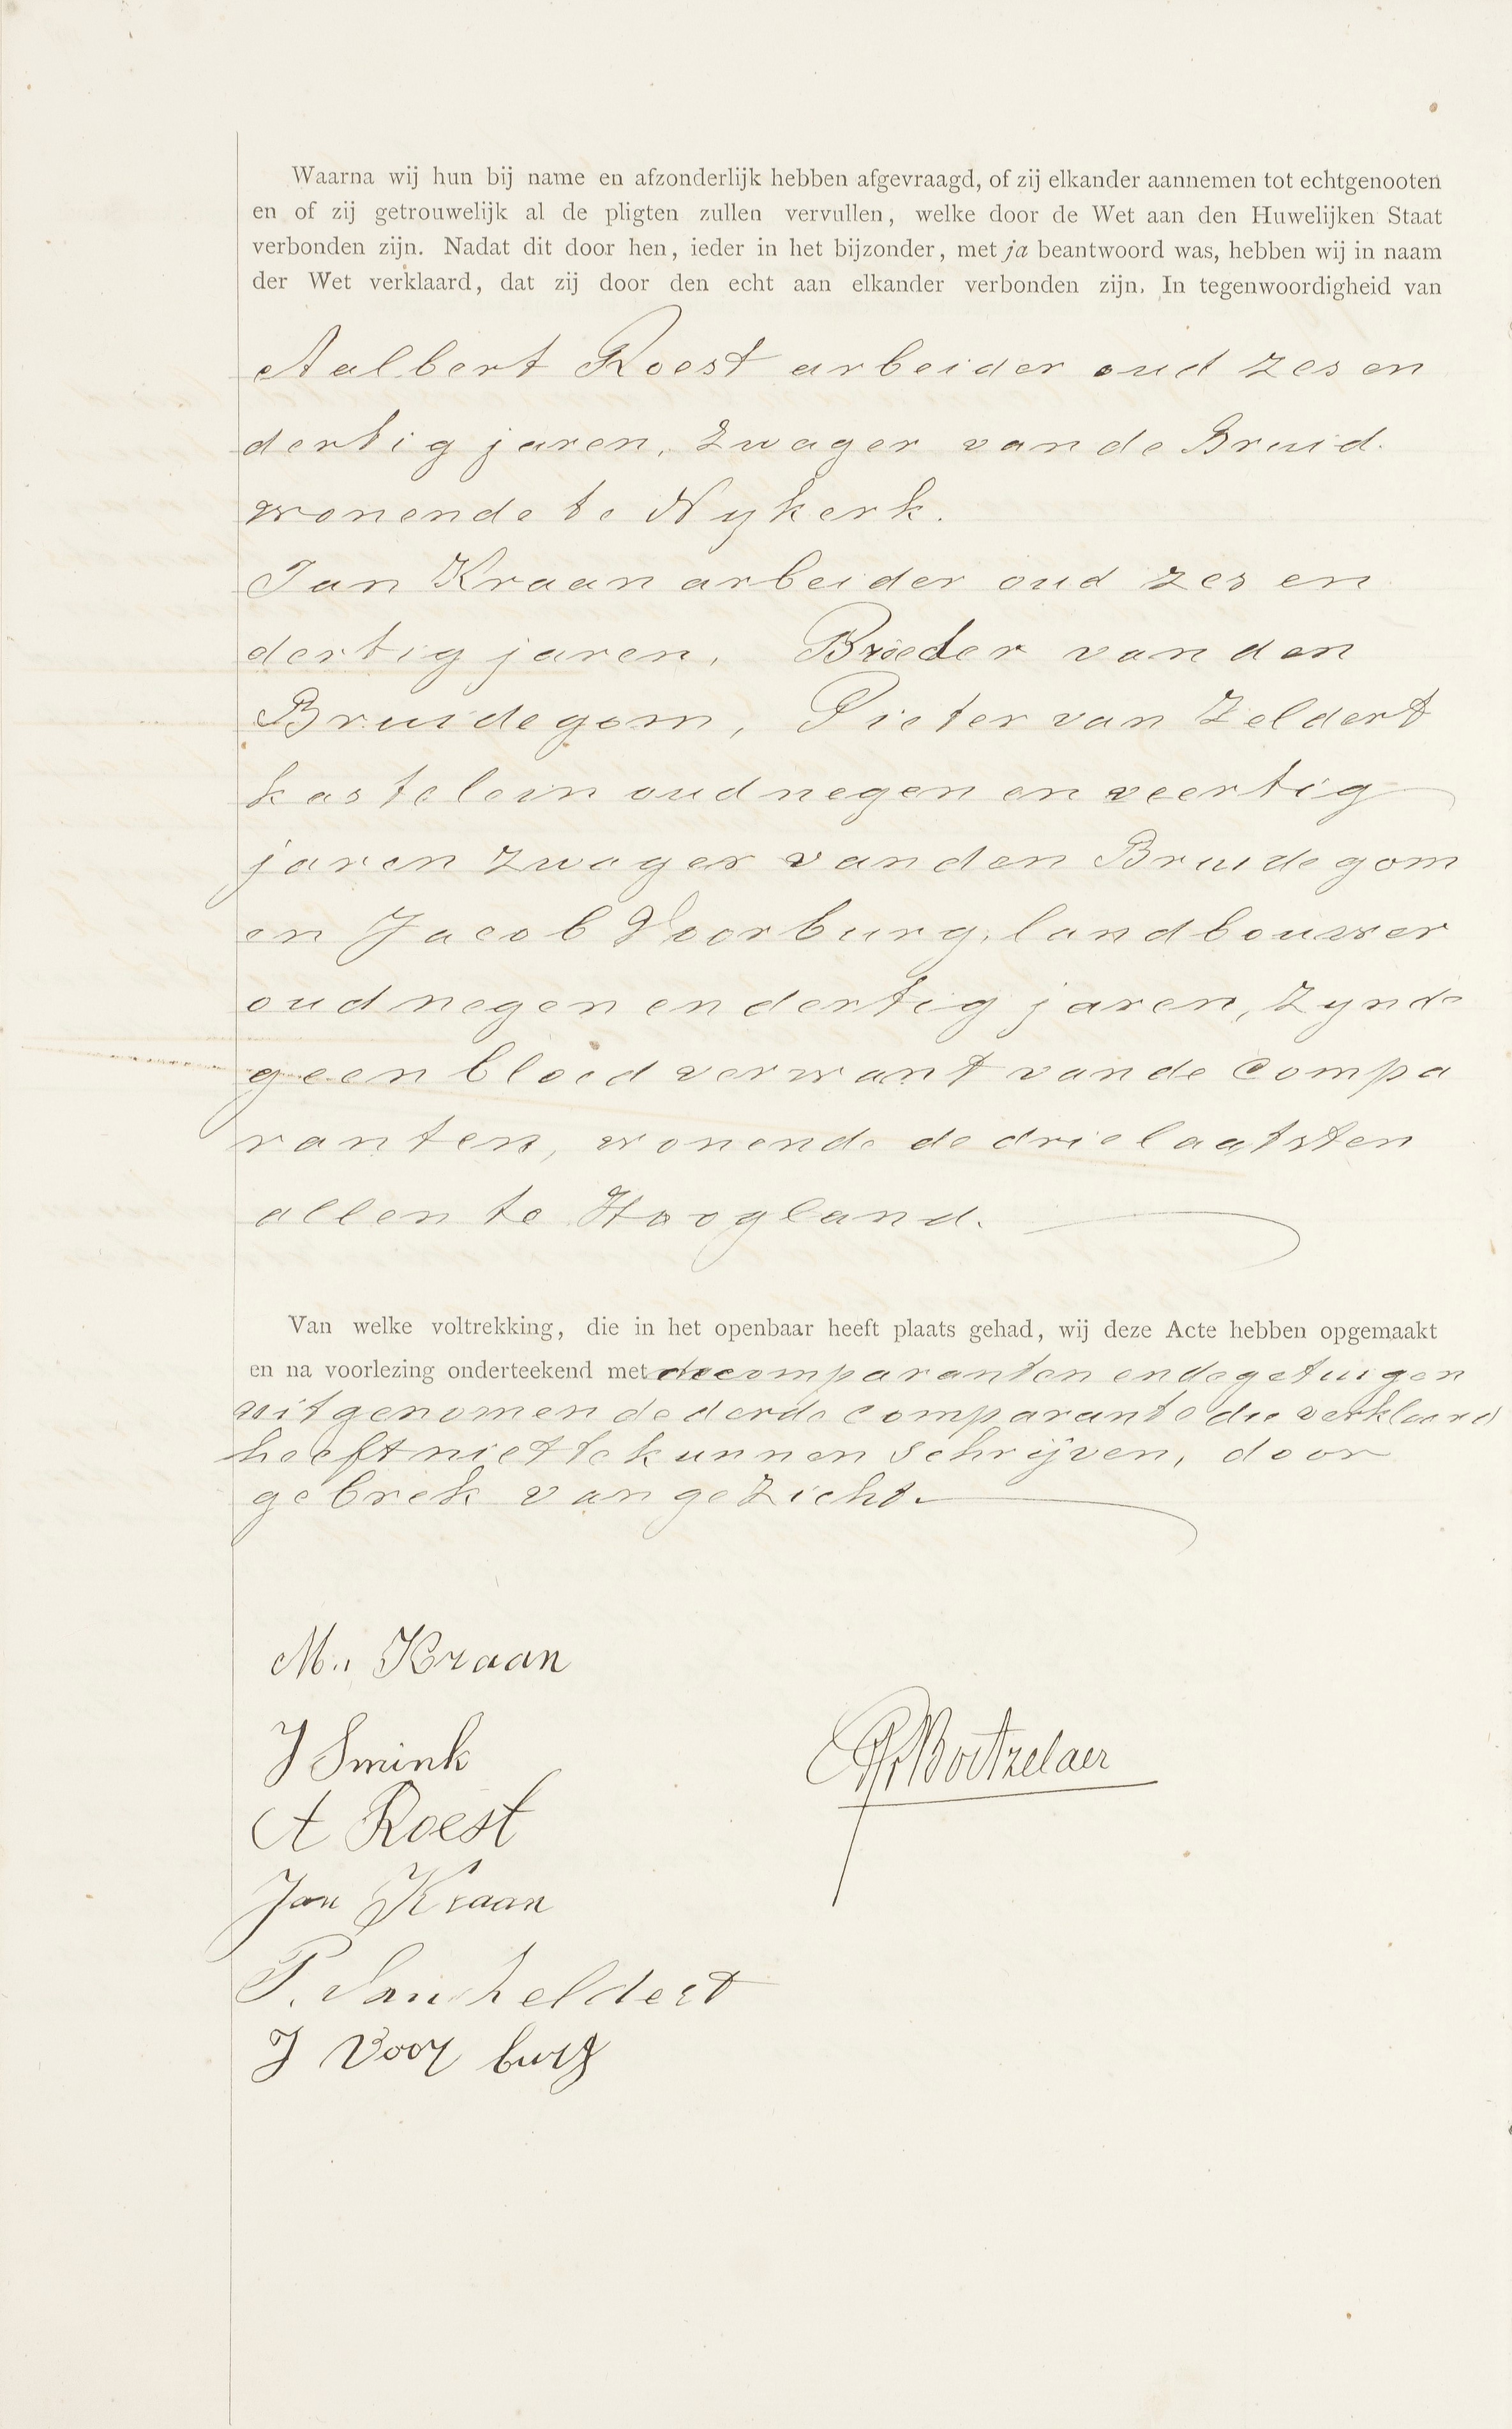 Waarna wij hun bij name en afzonderlijk hebben afgevraagd, of zij elkander aannemen tot echtgenooten
en of zij getrouwelijk al de pligten zullen vervullen, welke door de Wet aan den Huwelijken Staat
verbonden zijn. Nadat dit door hen, ieder in het bijzonder, met ja beantwoord was, hebben wij in naam
der Wet verklaard, dat zij door den echt aan elkander verbonden zijn. In tegenwoordigheid van
Aalbert Roest arbeider oud zes en
dertig jaren, zwager van de Bruid.
wonende te Nykerk.
Jan Kraan arbeider oud zes en
dertig jaren, Broeder van den
Bruidegom, Pieter van Zeldert
kastelein oud negen en veertig
jaren zwager van den Bruidegom
en Jacob Voorburg, landbouwer
oud negen en dertig jaren, zynde
geen bloedverwant van de Compa
ranten, wonende de drie laatsten
allen te Hoogland.
Van welke voltrekking, die in het openbaar heeft plaats gehad, wij deze Acte hebben opgemaakt
en na voorlezing onderteekend met de comparanten en de getuigen
uitgenomen de derde comparante die verklaard
heeft niet te kunnen schrijven, door
gebrek van gezicht.
M. Kraan
J Smink
Boetzelaer
A Roest
Jan Kraan
P. van Zeldert
J Voorburg